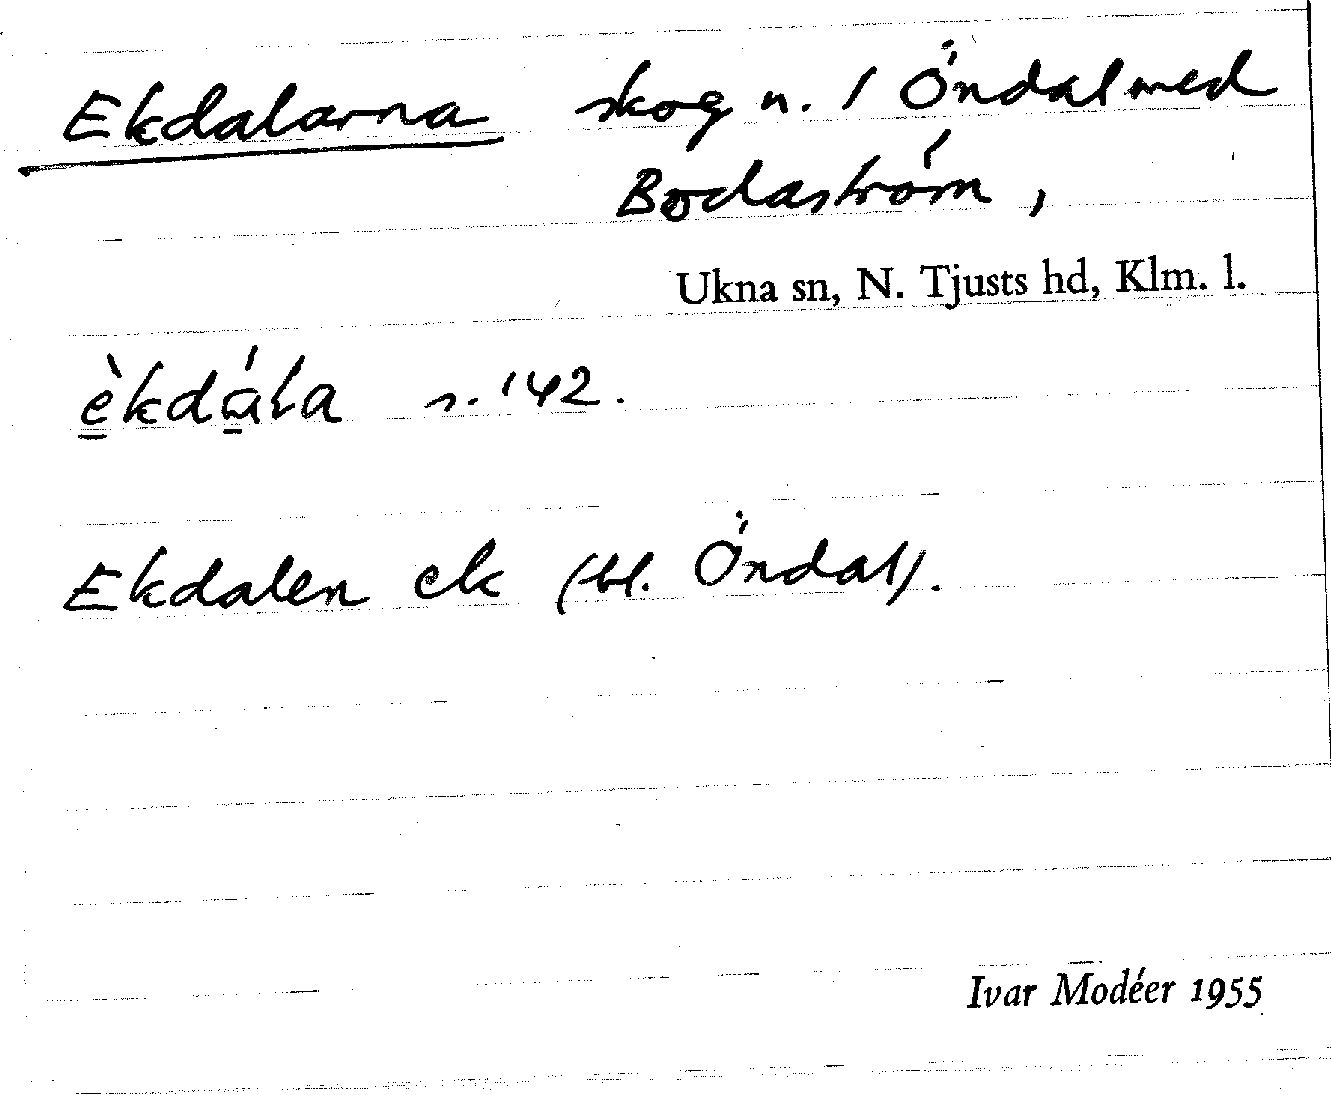 Ekdalarna skog n. / Öndal med
Bodaström,
Ukna sn, N. Tjusts hd, Klm. l.
èkdála s. '42.
Ekdalen ek (bl. Öndal).
Ivar Modéer 1955